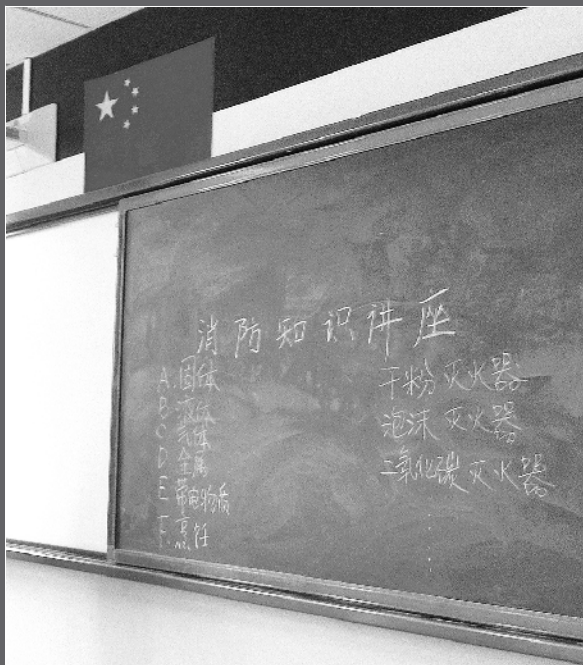 消防知识讲座
A.固体
B 液体
C 气体
D 金属
E 带电物质
F. 烹饪
干粉灭火器
泡沫灭火器
二氧化碳灭火器